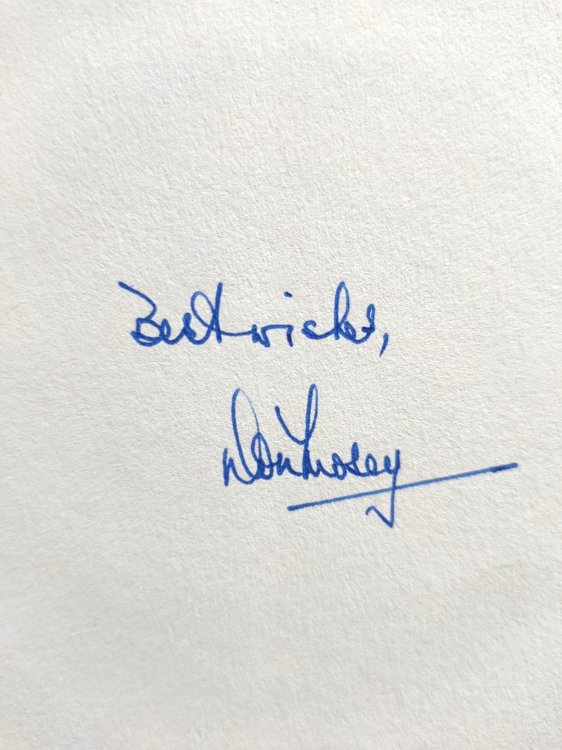 Best wishes,
Don Mosey